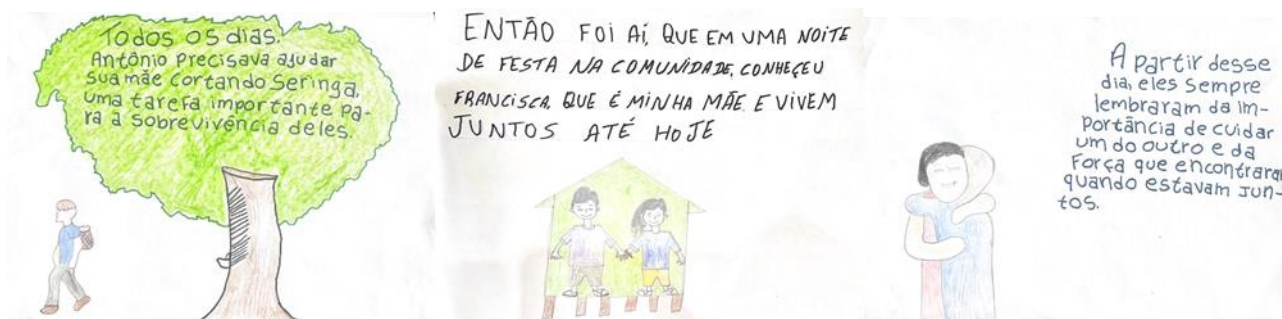 Todos os dias.
Antônio precisava ajudar
sua mãe cortando Seringa,
uma tarefa importante pa-
ra a sobrevivência deles.
ENTÃO FOI AÍ, QUE EM UMA NOITE
DE FESTA NA COMUNIDADE, CONHEÇEU
FRANCISCA, QUE É MINHA MÃE. E VIVEM
JUNTOS ATÉ HOJE
A partir desse
dia, eles sempre
lembraram da im-
portância de cuidar
um do outro e da
Força que encontraram
quando estavam jun-
tos.